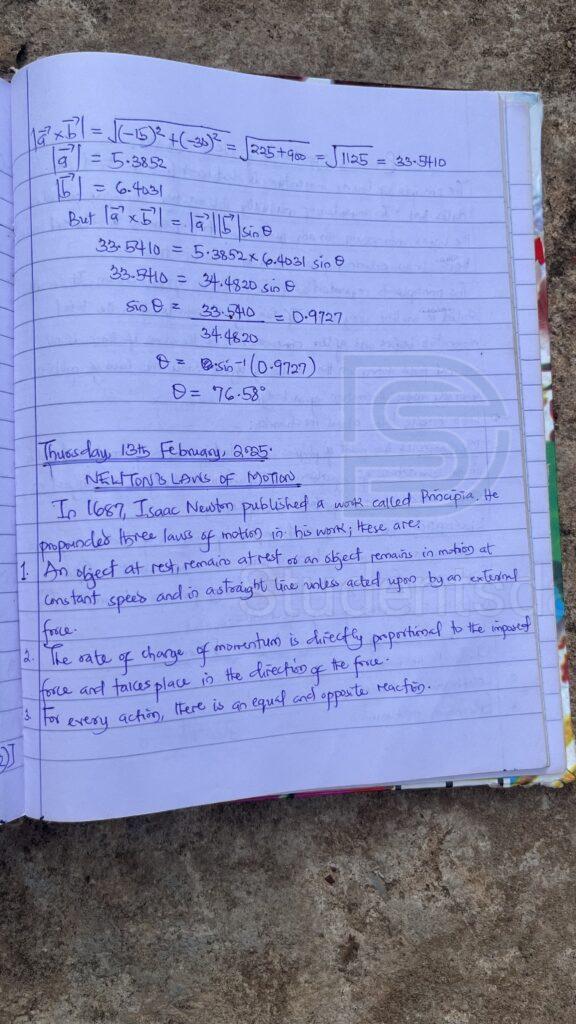 |a⃗ × b⃗| = √(-15)² + (-30)² = √225+900 = √1125 = 33.5410
|a⃗| = 5.3852
|b⃗| = 6.4031
But |a⃗ × b⃗| = |a⃗||b⃗| sin θ
33.5410 = 5.3852 × 6.4031 sin θ
33.5410 = 34.4820 sin θ
sin θ = 33.5410 / 34.4820 = 0.9727
θ = sin⁻¹ (0.9727)
θ = 76.58°
Thursday, 13th February, 2025.
NEWTON'S LAWS OF MOTION
In 1687, Isaac Newton published a work called Principia. He
propounded three laws of motion in his work; these are:
1. An object at rest, remains at rest or an object remains in motion at
constant speed and in a straight line unless acted upon by an external
force.
2. The rate of change of momentum is directly proportional to the impressed
force and takes place in the direction of the force.
3. For every action, there is an equal and opposite reaction.